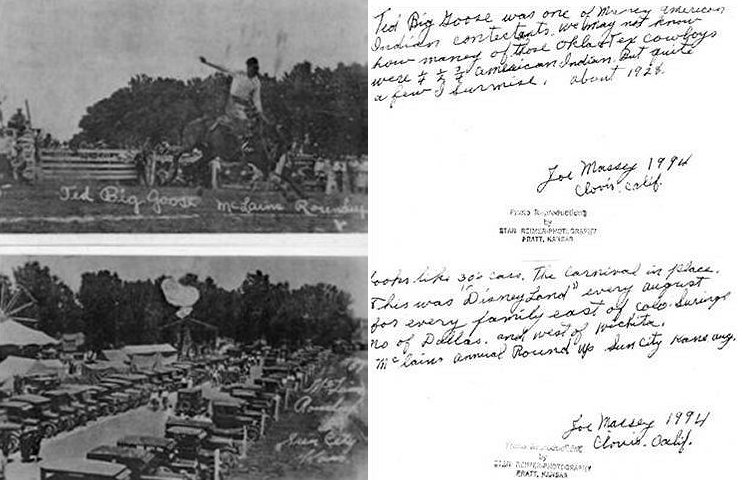 Ted Big Goose McLains Roundup
Ted Big Goose was one of Maney American
Indian contestants. We may not know
how maney of those Okla-Tex cowboys
were ½ ¾ American Indian. But quite
a few I surmise. about 1928.
Joe Massey 1994
Clovis, Calif.
Photo Reproductions
by
STAN REIMER-PHOTOGRAPHY
PRATT, KANSAS
Roundup
Sun City
looks like 30's cars. The carnival in place.
This was "DisneyLand" every august
for every family east of Colo. Springs
no of Dallas. and west of Wichita.
McLains annual Round Up Sun City Kans aug.
Joe Massey 1994
Clovis, Calif.
Photo Reproductions
by
STAN REIMER-PHOTOGRAPHY
PRATT, KANSAS